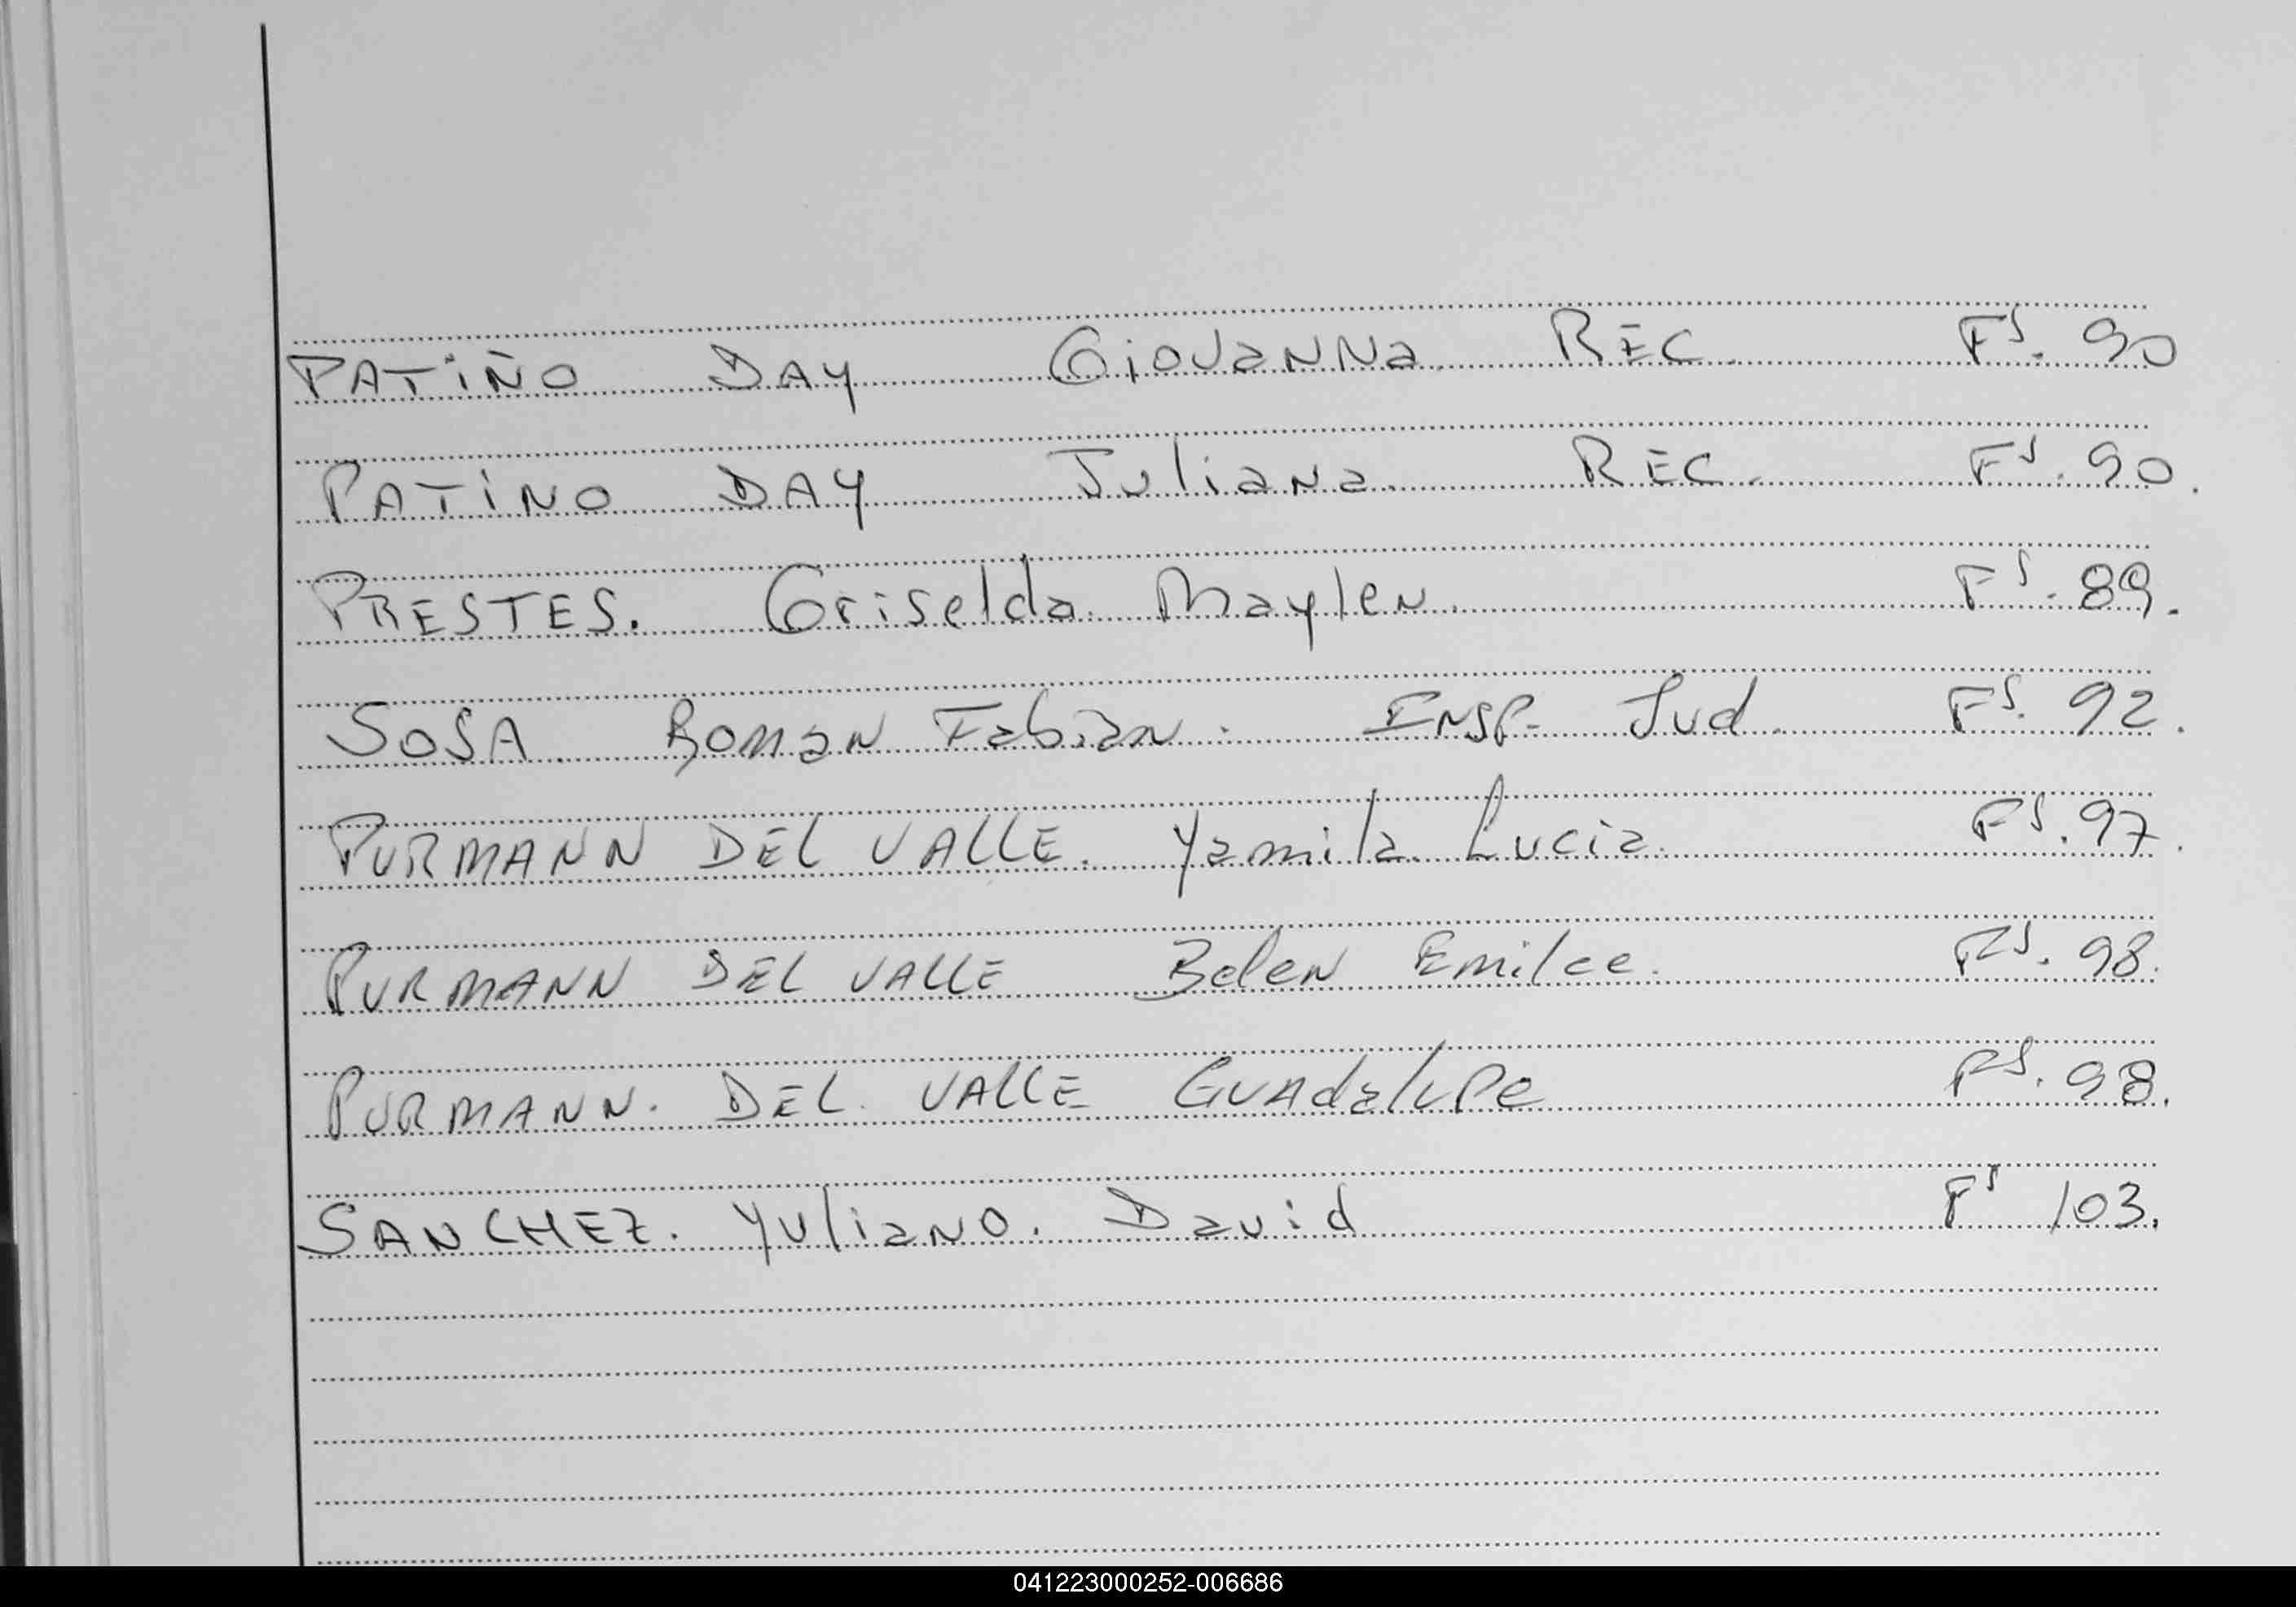 PATIÑO DAY Giovanna REC. Fs. 90
PATINO DAY Juliana REC. Fs. 90.
PRESTES. Griselda Maylen Fs. 89.
SOSA Roman Fabian. INSP. Jud. Fs. 92.
PURMANN DEL VALLE. Yamila Lucia. Fs. 97.
PURMANN DEL VALLE Belen Emilce. Fs. 98.
PURMANN. DEL. VALLE GUAdalupe Fs. 98.
SANCHEZ. Yuliano. David Fs 103.
041223000252-006686